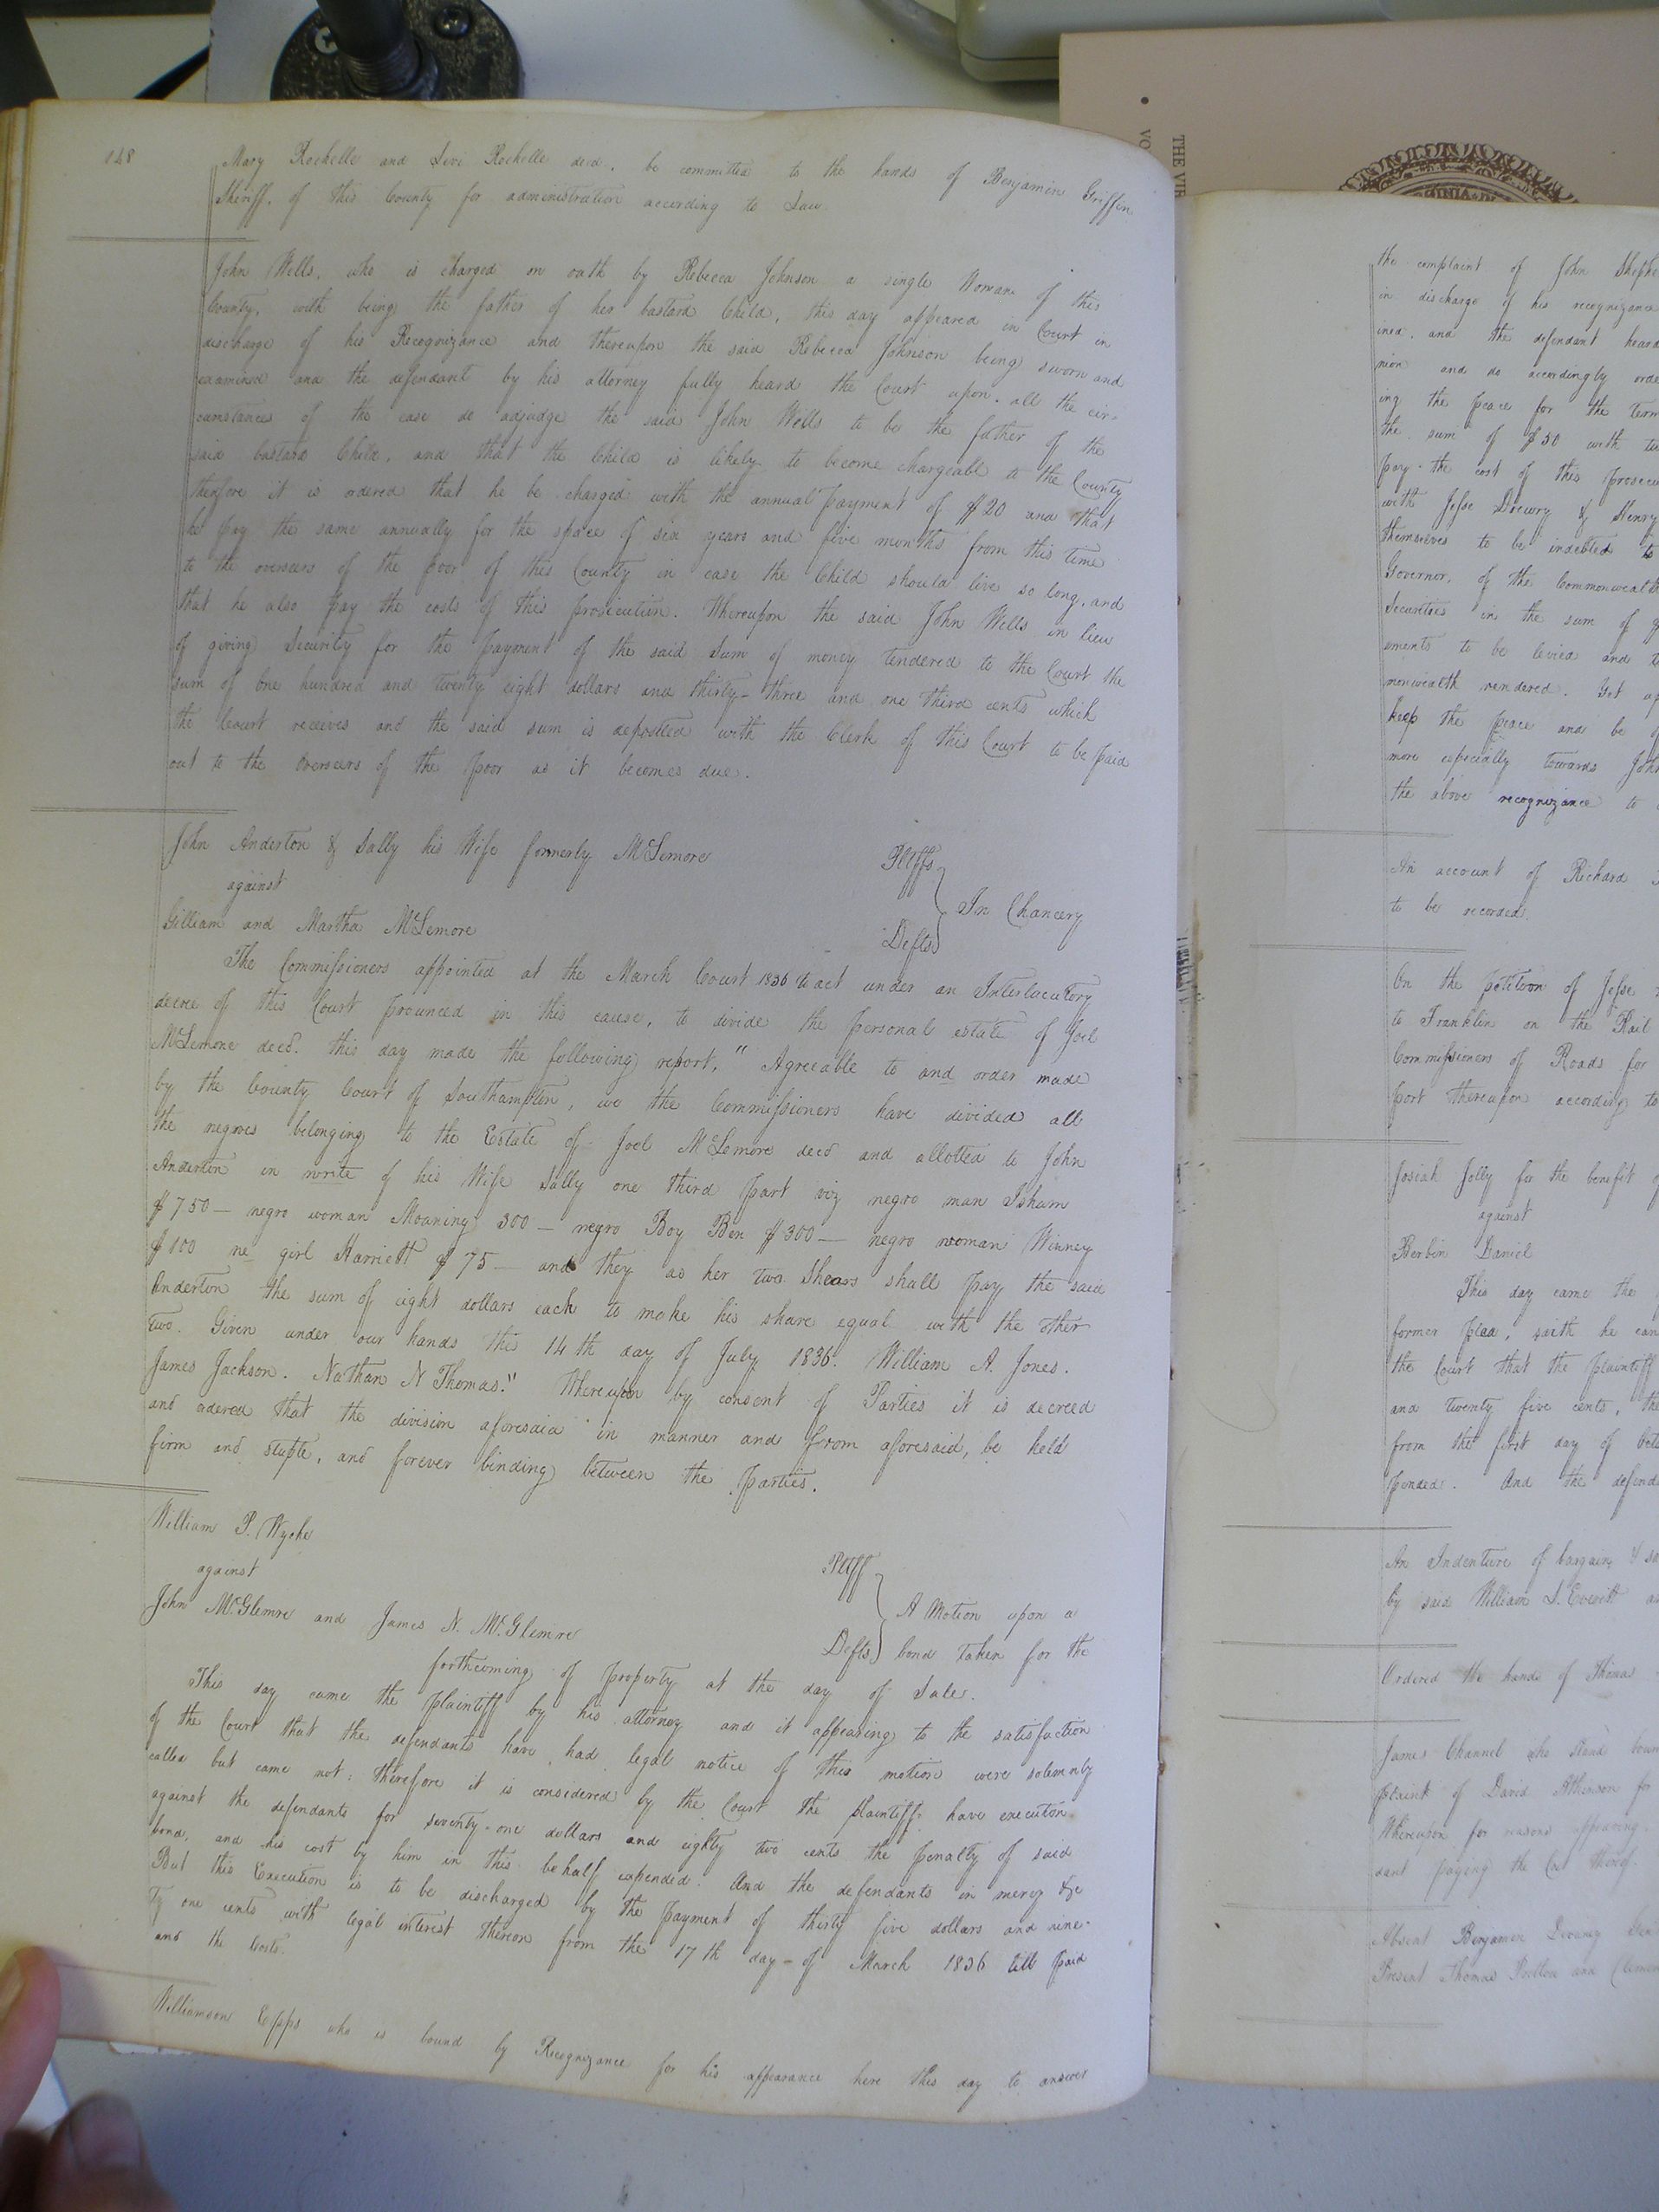 148
Mary Rochelle and Levi Rochelle decd. be committed to the hands of Benjamin Griffin
Sheriff. of this County for administration according to Law
John Wells, who is charged on oath by Rebecca Johnson a single Woman of this
County, with being the father of her bastard Child, this day appeared in Court in
discharge of his Recognizance and thereupon the said Rebecca Johnson being sworn and
examined and the defendant by his attorney fully heard the Court upon. all the cir=
cumstances of the case do adjudge the said John Wells to be the father of the
said bastard Child, and that the Child is likely to become chargeable to the County
therefore it is ordered that he be charged with the annual payment of $20 and that
he pay the same annually for the space of six years and five months from this time
to the overseers of the poor of this County in case the Child should live so long, and
that he also pay the costs of this prosicution. Whereupon the said John Wells in lieu
of giving Security for the payment of the said Sum of money tendered to the Court the
sum of One hundred and twenty eight dollars and thirty-three and one third cents which
the Court receives and the said sum is deposited with the Clerk of this Court to be paid
out to the Overseers of the Poor as it becomes due.
John Anderton & Sally his Wife formerly McLemore Pltffs
against
In Chancery
Gilliam and Martha McLemore Defts
The Commissioners appointed at the March Court 1836 to act under an Interlocutory
decree of this Court prounced in this cause, to divide the personal estate of Joel
McLemore decd. this day made the following report, "Agreeable to and order made
by the County Court of Southampton, we the Commissioners have divided all
the negroes belonging to the Estate of Joel McLemore decd and allotted to John
Anderton in write of his Wife Sally one third part viz negro man Isham
$750 — negro woman Moaning 300 — negro Boy Ben $300 — negro woman Winney
$100 ne girl Harriett $75 — and they as her two Shears shall pay the said
Anderton the sum of eight dollars each to make his share equal with the other
two. Given under our hands this 14th day of July 1836. William A. Jones.
James Jackson. Nathan N Thomas." Whereupon by consent of Parties it is decreed
and odered that the division aforesaid in manner and from aforesaid, be held
firm and stable, and forever binding between the parties.
William P. Wyche Pltff
against
A Motion upon a
John McGlemre and James N. McGlemre Defts bond taken for the
forthcoming of property at the day of Sale.
This day came the plaintiff by his attorney and it appearing to the satisfaction
of the Court that the defendants have had legal notice of this motion were solemnly
called but came not: therefore it is considered by the Court the plaintiff have execution
against the defendants for seventy-one dollars and eighty two cents the penalty of said
bond, and his cost by him in this behalf expended. And the defendants in mercy &c
But this Execution is to be discharged by the payment of thirty five dollars and nine-
ty one cents with legal interest thereon from the 17th day of March 1836 till paid
and the Costs.
Williamson Epps who is bound by Recognizance for his appearance here this day to answer
THE VIR
VO
the complaint of John
in discharge of his recognizance
ined, and the defendant heard
nion and do accordingly orde
ing the peace for the term
the sum of $50 with
pay the cost of this prosecu
with Jesse Drewry & Henry
themselves to be indebted to
Governor, of the Commonwealth
Securities in the sum of
ements to be levied and
monwealth rendered. Yet
keep the peace and be
more especially towards John
the above recognizance to
An account of Richard
to be recorded.
On the petition of Jesse
to Franklin on the Rail
Commissioners of Roads for
port thereupon according to
Josiah Jolly for the benefit
against
Berbin Daniel
This day came the
former plea, saith he can
the Court that the plaintiff
and twenty five cents, the
from the first day of
pended. And the defend
An Indenture of bargain &
by said William S. Everitt
Ordered the hands of Thomas
James Channel who stand boun
plaint of David Atkinson for
Whereupon for reasons appearing
dant paying the Cos thereof.
Absent Benjamin
Present Thomas and